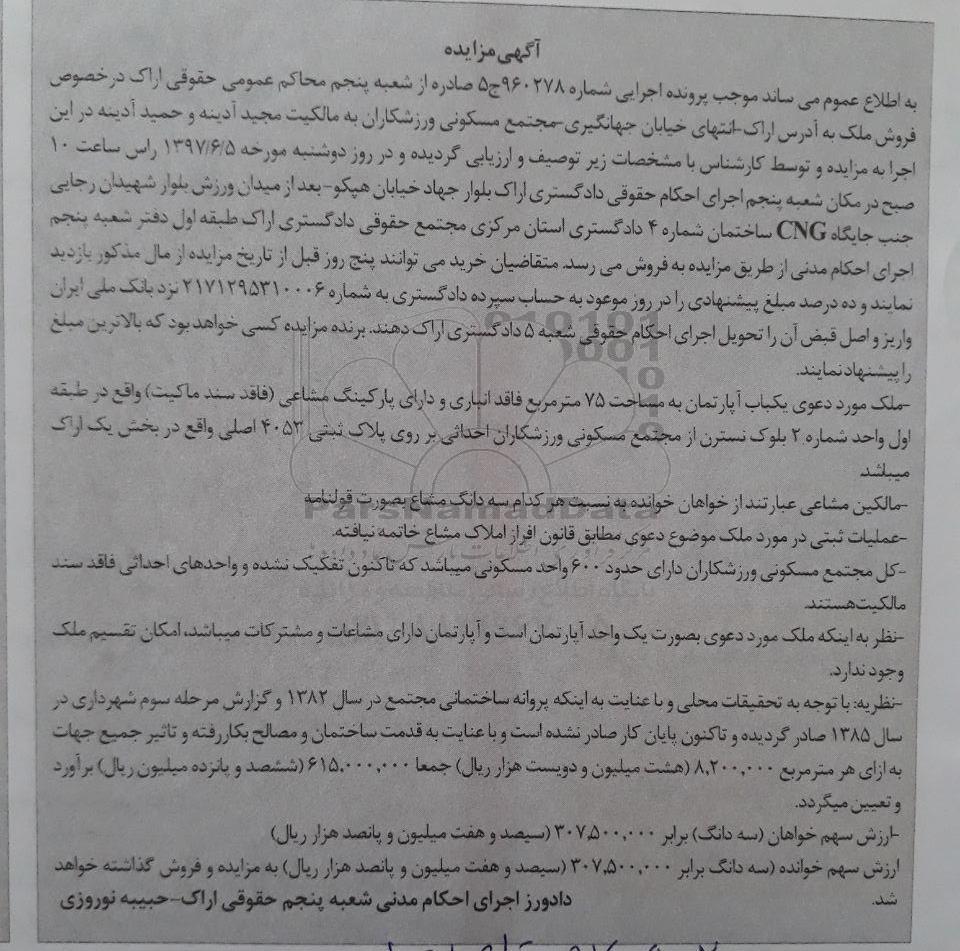 آگهی مزایده
به اطلاع عموم می ساند موجب پرونده اجرایی شماره ۹۶۰۲۷۸ج۵ صادره از شعبه پنجم محاکم عمومی حقوقی اراک درخصوص
فروش ملک به آدرس اراک-انتهای خیابان جهانگیری-مجتمع مسکونی ورزشکاران به مالکیت مجید آدینه و حمید آدینه در این
اجرا به مزایده و توسط کارشناس با مشخصات زیر توصیف و ارزیابی گردیده و در روز دوشنبه مورخه ۱۳۹۷/۶/۵ راس ساعت ۱۰
صبح در مکان شعبه پنجم اجرای احکام حقوقی دادگستری اراک بلوار جهاد خیابان هپکو-بعد از میدان ورزش بلوار شهیدان رجایی
جنب جایگاه CNG ساختمان شماره ۴ دادگستری استان مرکزی مجتمع حقوقی دادگستری اراک طبقه اول دفتر شعبه پنجم
اجرای احکام مدنی از طریق مزایده به فروش می رسد. متقاضیان خرید می توانند پنج روز قبل از تاریخ مزایده از مال مذکور بازدید
نمایند و ده درصد مبلغ پیشنهادی را در روز موعود به حساب سپرده دادگستری به شماره ۲۱۷۱۲۹۵۳۱۰۰۰۶ نزد بانک ملی ایران
واریز و اصل قبض آن را تحویل اجرای احکام حقوقی شعبه ۵ دادگستری اراک دهند. برنده مزایده کسی خواهد بود که بالاترین مبلغ
را پیشنهاد نمایند.
-ملک مورد دعوی یکباب آپارتمان به مساحت ۷۵ مترمربع فاقد انباری و دارای پارکینگ مشاعی (فاقد سند ماکیت) واقع در طبقه
اول واحد شماره ۲ بلوک نسترن از مجتمع مسکونی ورزشکاران احداثی بر روی پلاک ثبتی ۴۰۵۳ اصلی واقع در بخش یک اراک
میباشد.
-مالکین مشاعی عبارتند از خواهان خوانده به نسبت هر کدام سه دانگ مشاع بصورت قولنامه
-عملیات ثبتی در مورد ملک موضوع دعوی مطابق قانون افراز املاک مشاع خاتمه نیافته.
-کل مجتمع مسکونی ورزشکاران دارای حدود ۶۰۰ واحد مسکونی میباشد که تاکنون تفکیک نشده و واحدهای احداثی فاقد سند
مالکیت هستند.
-نظر به اینکه ملک مورد دعوی بصورت یک واحد آپارتمان است و آپارتمان دارای مشاعات و مشترکات میباشد، امکان تقسیم ملک
وجود ندارد.
-نظریه: با توجه به تحقیقات محلی و با عنایت به اینکه پروانه ساختمانی مجتمع در سال ۱۳۸۲ و گزارش مرحله سوم شهرداری در
سال ۱۳۸۵ صادر گردیده و تاکنون پایان کار صادر نشده است و با عنایت به قدمت ساختمان و مصالح بکاررفته و تاثیر جمیع جهات
به ازای هر مترمربع ۸,۲۰۰,۰۰۰ (هشت میلیون و دویست هزار ریال) جمعا ۶۱۵,۰۰۰,۰۰۰ (ششصد و پانزده میلیون ریال) برآورد
و تعیین میگردد.
-ارزش سهم خواهان (سه دانگ) برابر ۳۰۷,۵۰۰,۰۰۰ (سیصد و هفت میلیون و پانصد هزار ریال)
ارزش سهم خوانده (سه دانگ برابر ۳۰۷,۵۰۰,۰۰۰ (سیصد و هفت میلیون و پانصد هزار ریال) به مزایده و فروش گذاشته خواهد
شد. دادورز اجرای احکام مدنی شعبه پنجم حقوقی اراک-حبیبه نوروزی
ParsNamadData